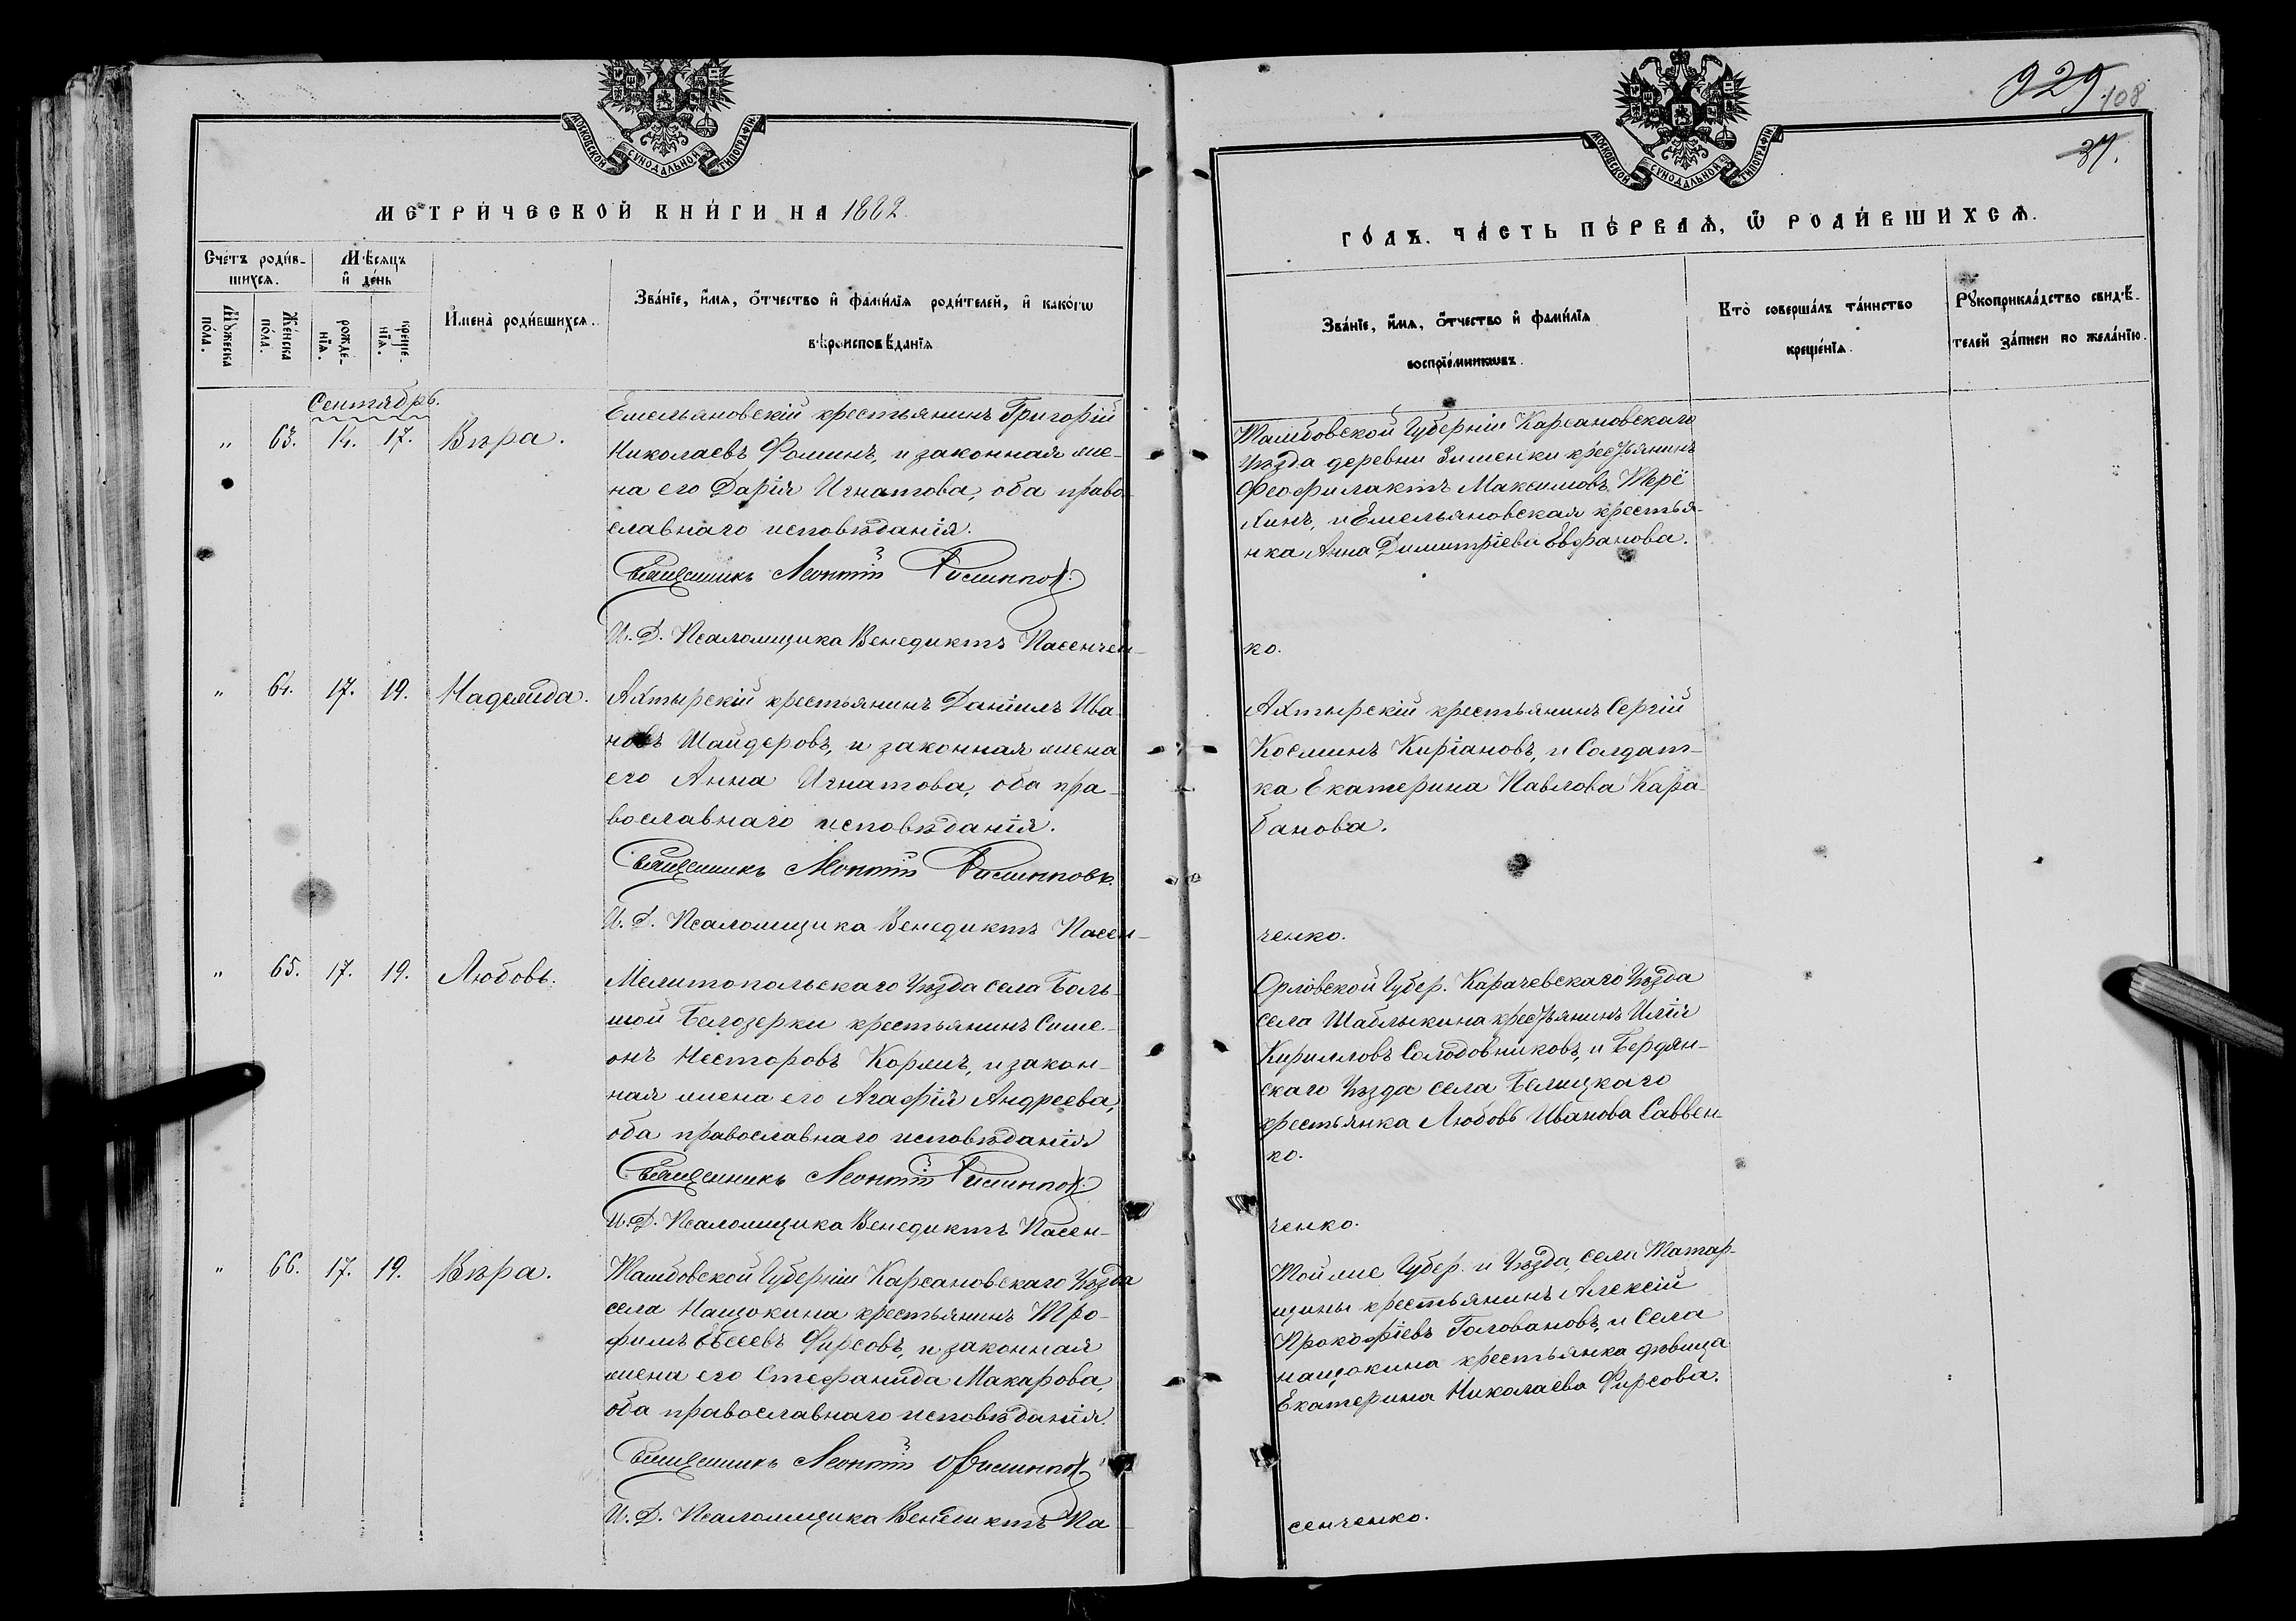 МОСКОВСКОЙ СѴНОДАЛЬНОЙ ТИПОГРАФІИ
МЕТРИЧЕСКОЙ КНИГИ НА 1882.
Счетъ родив-
шихся.
Мѣсяцъ
и день
Мужеска пола.
Женска пола.
рожде-
нія.
креще-
нія.
Имена родившихся.
Званіе, имя, отчество и фамилія родителей, и какогѡ
вѣроисповѣданія
Сентябрь.
" 63. 14. 17. Вѣра.
Емельяновскій крестьянинъ Григорій
Николаевъ Фоминъ, и законная же-
на его Дарія Игнатова, оба право-
славнаго исповѣданія.
Священникъ Леонтій Филипповъ.
И. Д. Псаломщика Венедиктъ Пасенчен-
" 64. 17. 19. Надежда.
Ахтырскій крестьянинъ Даніилъ Ива-
новъ Шайдеровъ, и законная жена
его Анна Игнатова, оба пра-
вославнаго исповѣданія.
Священникъ Леонтій Филипповъ.
И. Д. Псаломщика Венедиктъ Пасен-
" 65. 17. 19. Любовь.
Мелитопольскаго Уѣзда села Боль-
шой Белозерки крестьянинъ Симе-
онъ Несторовъ Коржъ, и закон-
ная жена его Агафія Андреева,
оба православнаго исповѣданія
Священникъ Леонтій Филипповъ.
И. Д. Псаломщика Венедиктъ Пасен-
" 66. 17. 19. Вѣра.
Тамбовской Губерніи Карсановскаго Уѣзда
села Нащокина крестьянинъ Тро-
фимъ Евсеевъ Фирсовъ, и законная
жена его Стефанида Макарова,
оба православнаго исповѣданія.
Священникъ Леонтій Филипповъ
И. Д. Псаломщика Венедиктъ Па-
929 108
37.
МОСКОВСКОЙ СѴНОДАЛЬНОЙ ТИПОГРАФІИ
ГОДЪ. ЧАСТЬ ПЕРВАЯ, Ѡ РОДИВШИХСЯ.
Званіе, имя, отчество и фамилія
воспріемникѡвъ.
Кто совершалъ таинство
крещенія.
Рукоприкладство свидѣ-
телей записи по желанію.
Тамбовской Губерніи Карсановскаго
Уѣзда деревни Зименки крестьянинъ
Феофилактъ Максимовъ Терё
хинъ, и Емельяновская крестья-
нка Анна Димитріева Евфанова.
ко.
Ахтырскій крестьянинъ Сергій
Косминъ Киріановъ, и Солдат-
ка Екатерина Павлова Кара-
банова.
ченко.
Орловской Губер. Карачевскаго Уѣзда
села Шаблыкина крестьянинъ Илія
Кирилловъ Солодовниковъ, и Бердян-
скаго Уѣзда села Белицкаго
крестьянка Любовь Иванова Саввен-
ко.
ченко.
Той же Губер. и Уѣзда, села Татар-
щины крестьянинъ Алексій
Прокофіевъ Головановъ, и Села
нащокина крестьянка дѣвица
Екатерина Николаева Фирсова.
сенченко.